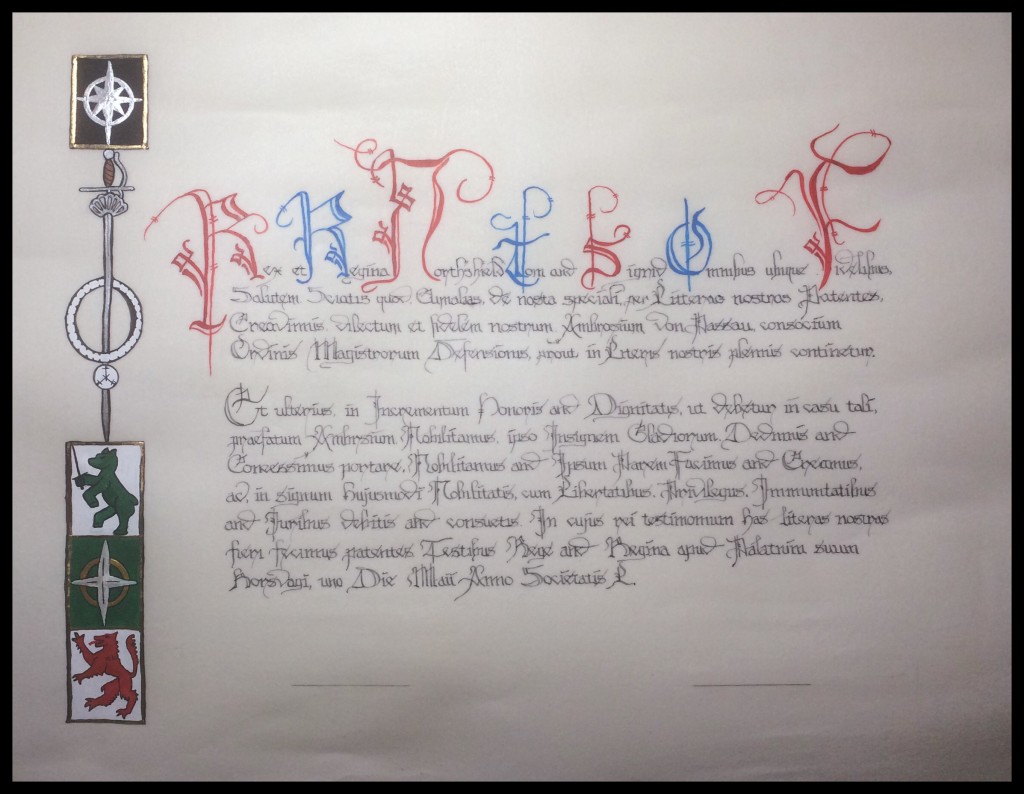 Rex et Regina Northshield Tom and Sigrid Omnibus ubique Fidelibus,
Salutem Sciatis quod Cynalas, de nosta speciali, per Litteras nostros Patentes,
Creavimus, dilectum et fidelem nostrum, Ambrosium Von Passau, consocium
Ordinis Magistrorum Defensionis, prout in Literis nostris plennis continetur.
Et ulterius, in Incrementum Honoris and Dignitatis, ut debetur in casu tali,
praefatum Ambrsium Nobilitamus, ipso Insignem Gladiorum, Dedimus and
Concessimus portare, Nobilitamus and Ipsum Parem Facimus and Creamus,
ac, in signum hujusmodi Nobilitatis, cum Libertatibus, Privilegus, Immunitatibus
and Juribus debitis and consuetis. In cujus rei testimonium has literas nostras
fieri fecimus patentes Testibus Rege and Regina apud Palatnira suum
Horsvagi, uno Die Maii Anno Societatis L.